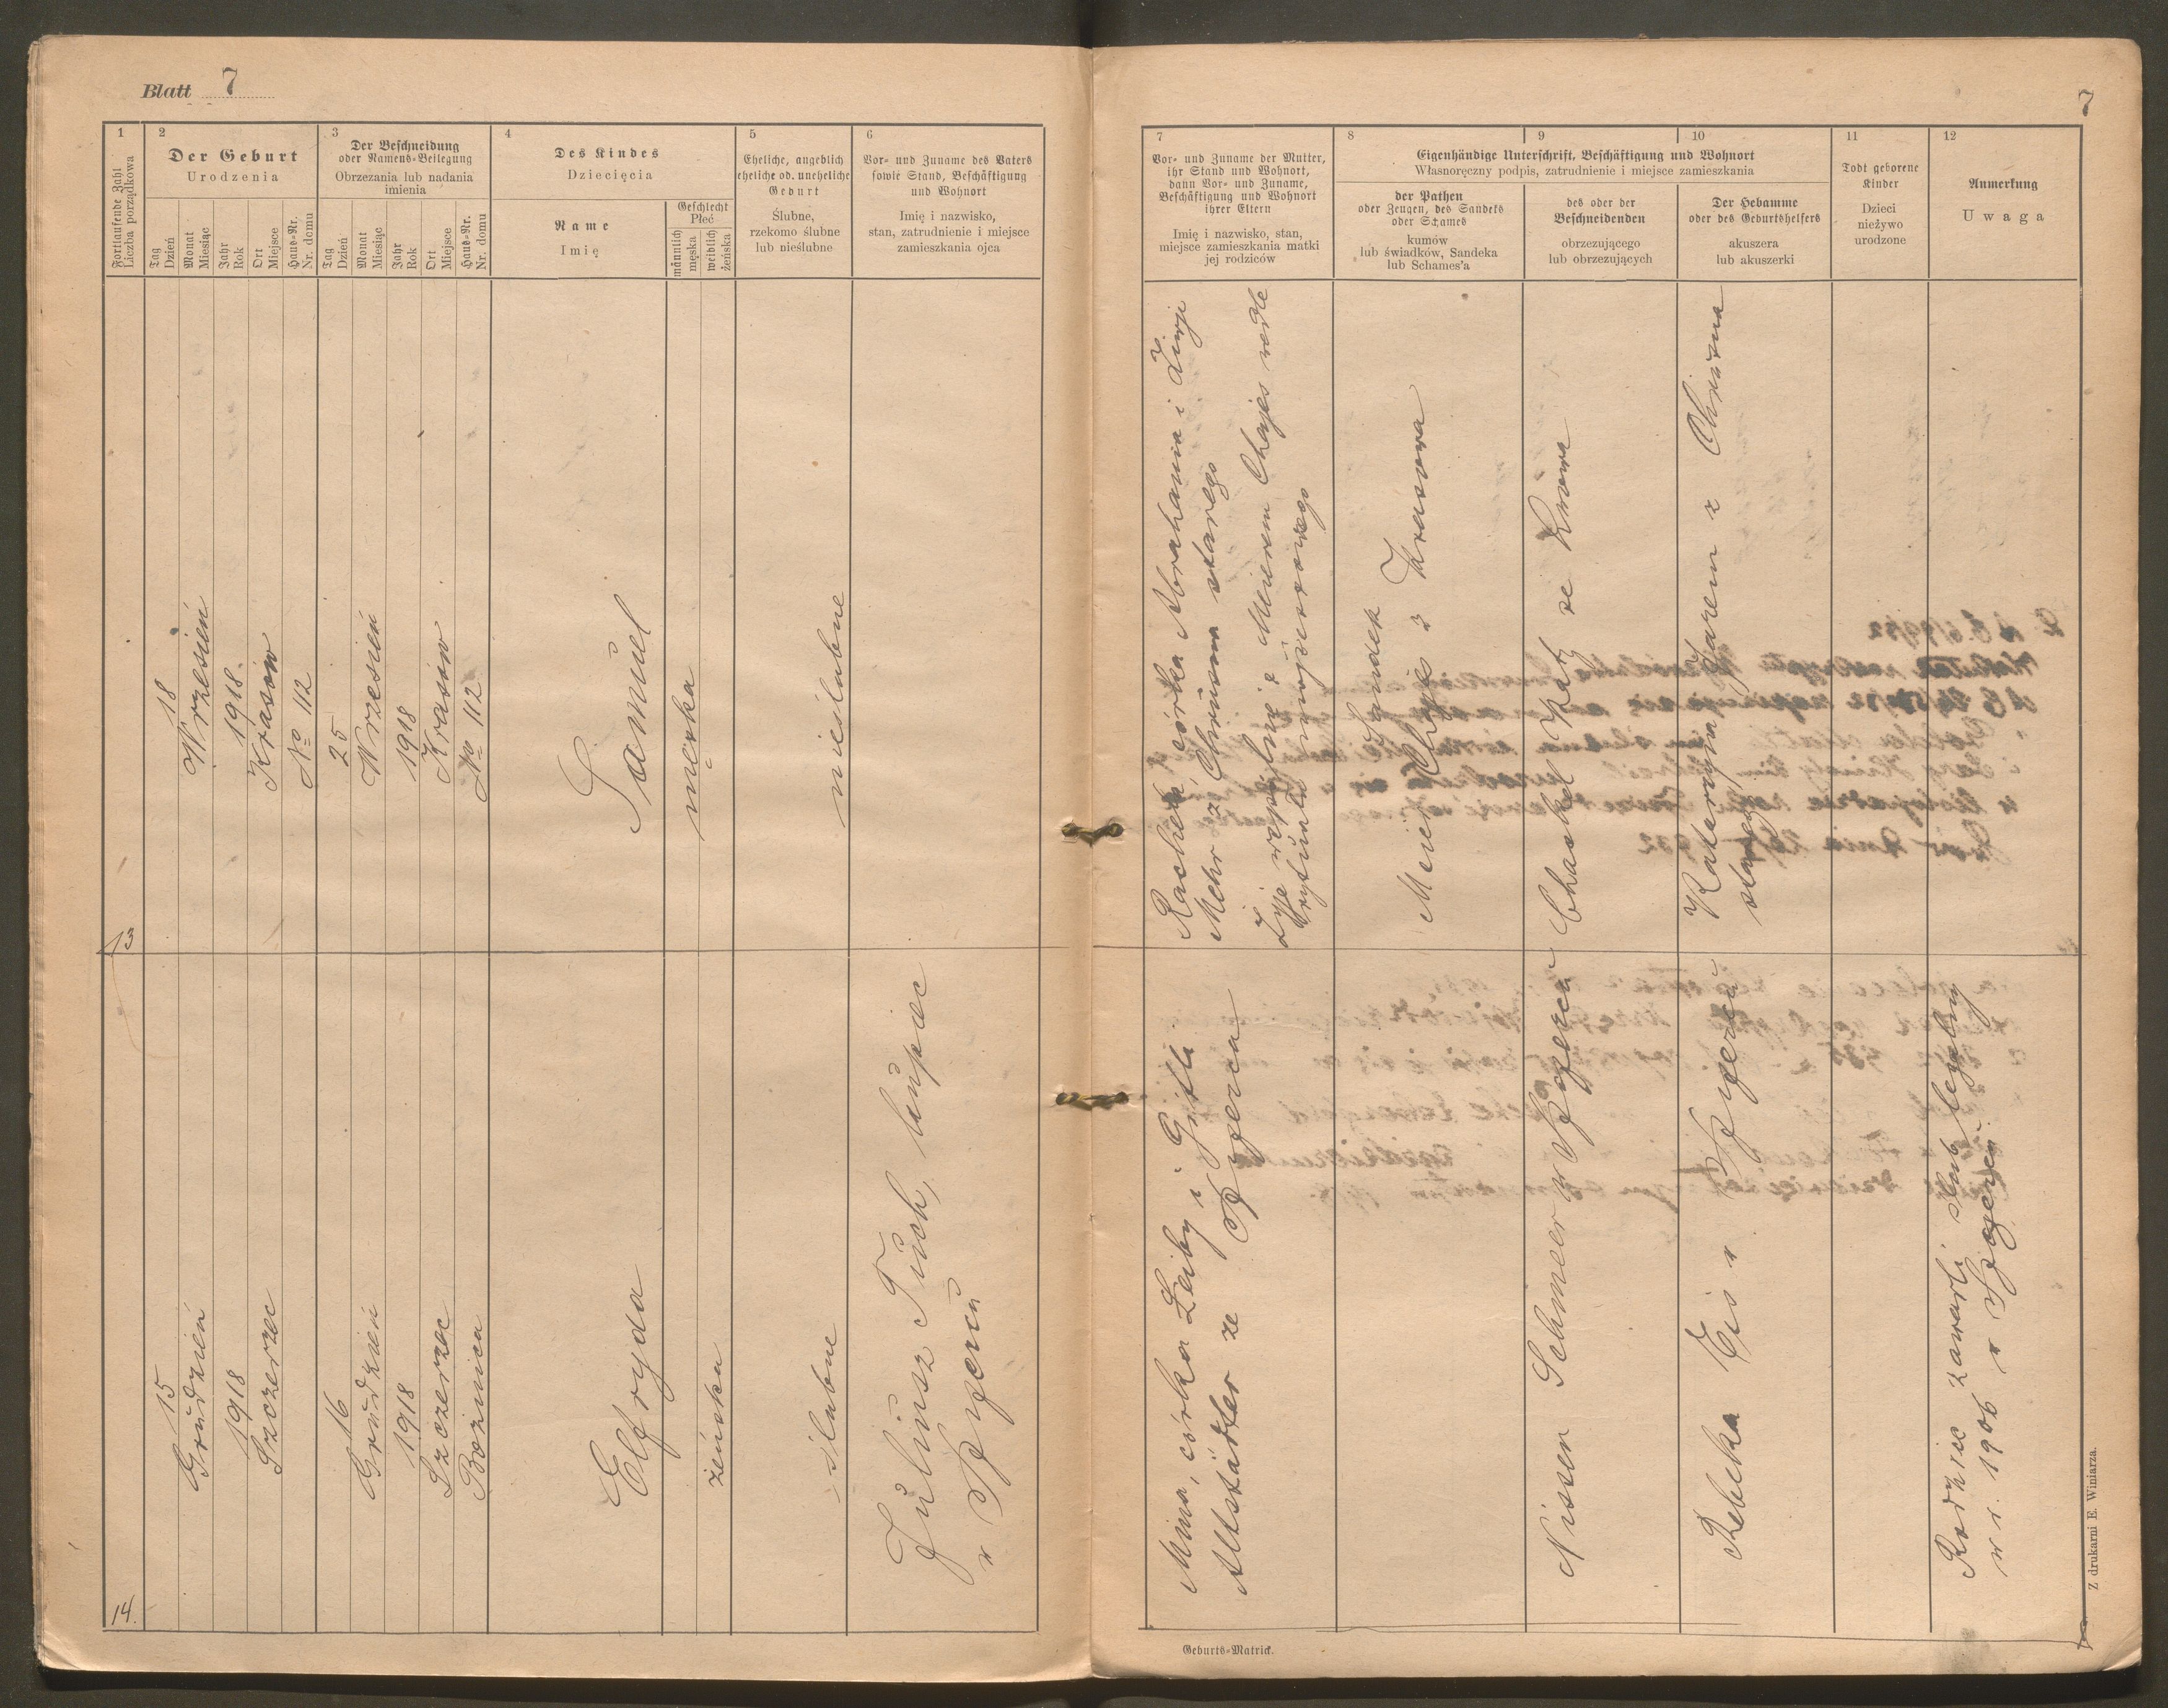 Blatt 7
7
1
Fortlaufende Zahl
Liczba porządkowa
2
Der Geburt
Urodzenia
Tag
Dzień
Monat
Miesiąc
Jahr
Rok
Ort
Miejsce
Haus-Nr.
Nr. domu
3
Der Beschneidung
oder Namens-Beilegung
Obrzezania lub nadania
imienia
Tag
Dzień
Monat
Miesiąc
Jahr
Rok
Ort
Miejsce
Haus-Nr.
Nr. domu
4
Des Kindes
Dziecięcia
Name
Imię
Geschlecht
Płeć
männlich
męska
weiblich
żeńska
5
Eheliche, angeblich
eheliche od. uneheliche
Geburt
Ślubne,
rzekomo ślubne
lub nieślubne
6
Vor- und Zuname des Vaters
sowie Stand, Beschäftigung
und Wohnort
Imię i nazwisko,
stan, zatrudnienie i miejsce
zamieszkania ojca
7
Vor- und Zuname der Mutter,
ihr Stand und Wohnort,
dann Vor- und Zuname,
Beschäftigung und Wohnort
ihrer Eltern
Imię i nazwisko, stan,
miejsce zamieszkania matki
jej rodziców
Eigenhändige Unterschrift, Beschäftigung und Wohnort
Własnoręczny podpis, zatrudnienie i miejsce zamieszkania
8
der Pathen
oder Zeugen, des Sandeks
oder Schames
kumów
lub świadków, Sandeka
lub Schames'a
9
des oder der
Beschneidenden
obrzezującego
lub obrzezujących
10
Der Hebamme
oder des Geburtshelfers
akuszera
lub akuszerki
11
Todt geborene
Kinder
Dzieci
nieżywo
urodzone
12
Anmerkung
Uwaga
13
18
Wrzesień
1918
Krasów
No 112
25
Wrzesień
1918
Krasów
No 112
Samuel
męska
nieślubne
Rachela córka Abrahama i
Mehr z Chrusna starego
Żyje wspólnie z Meierem Chajes wedle
rytuału
Sandek
Meier Chajes z Krasowa
Chaskel Katz ze Lwowa
Katarzyna Jarem z Chrusna
starego
14.
15
Grudzień
1918
Szczerzec
16
Grudzień
1918
Szczerzec
Boznica
Elfryda
żeńska
ślubne
Juliusz Tuch, kupiec
w Szczercu
Mina, córka Leiby i Gitli
Altstädter ze Szczerca
Nissen Schmeer w Szczercu
Rebeka Eis w Szczercu
Rodzice zawarli ślub legalny
w r. 1906 w Szczercu
Geburts-Matrick.
Z drukarni E. Winiarza.